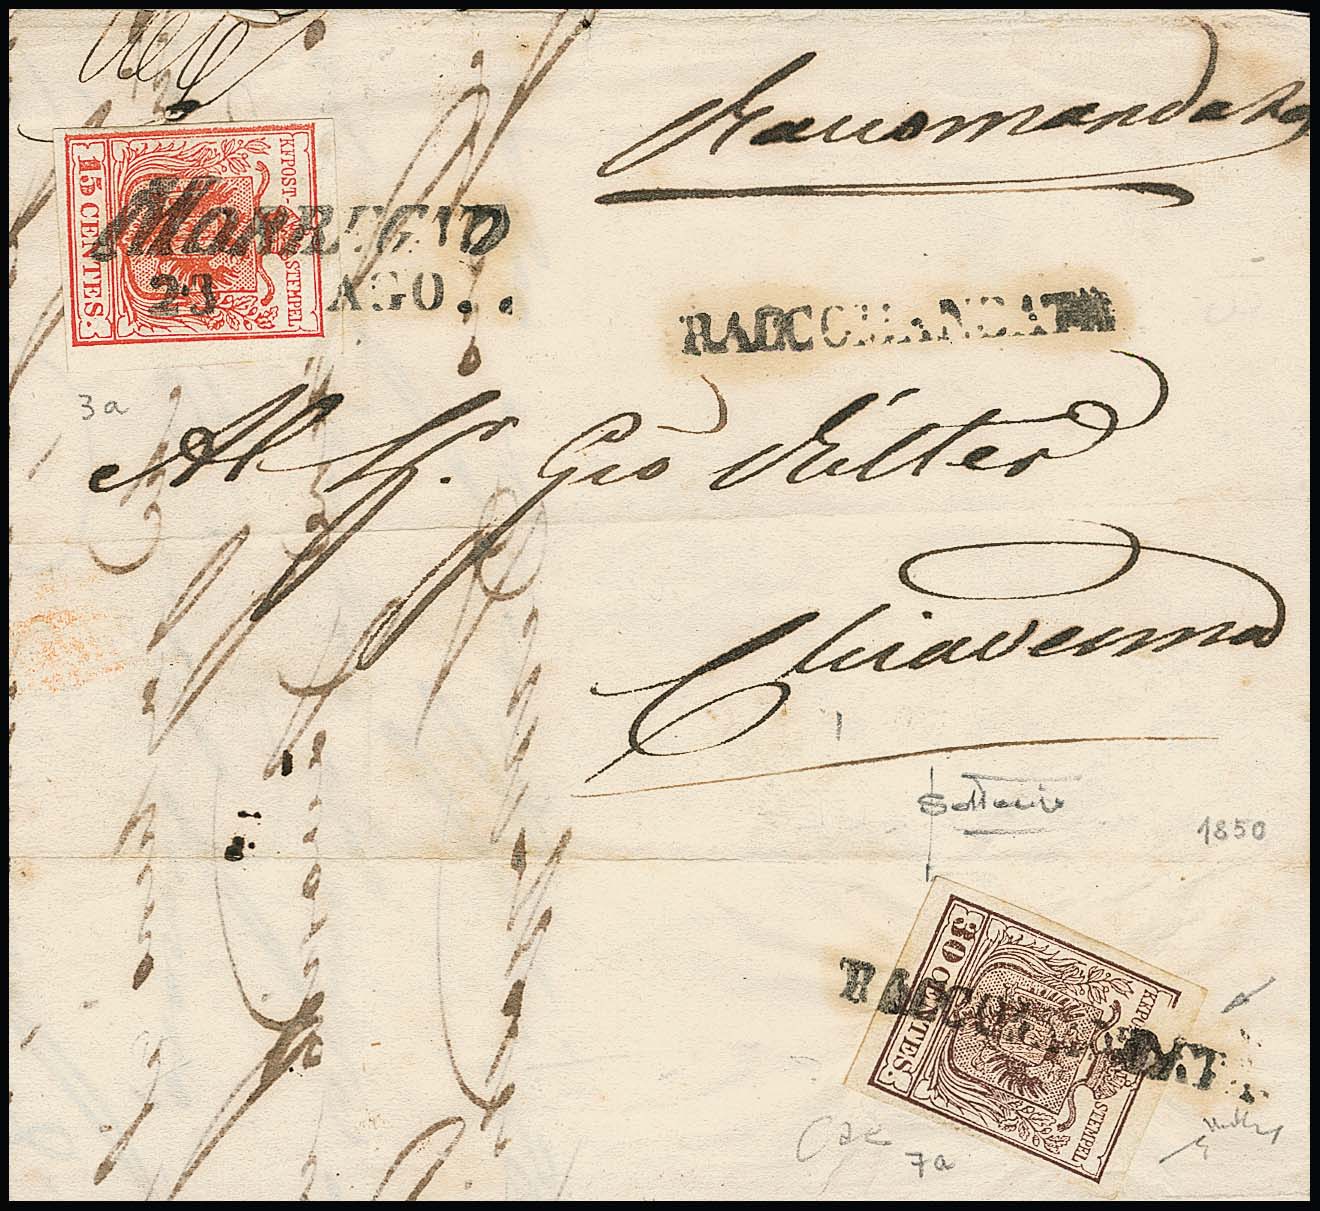 Raccomandata
K.K.POST-STEMPEL
15 CENTES.
MORBEGNO
23 AGO..
RACCOMANDATA
3a
Al Sigr. Gio Ritter
Chiavenna
1850
30 CENTES.
KKPOST-STEMPEL
RACCOMANDAT
7a